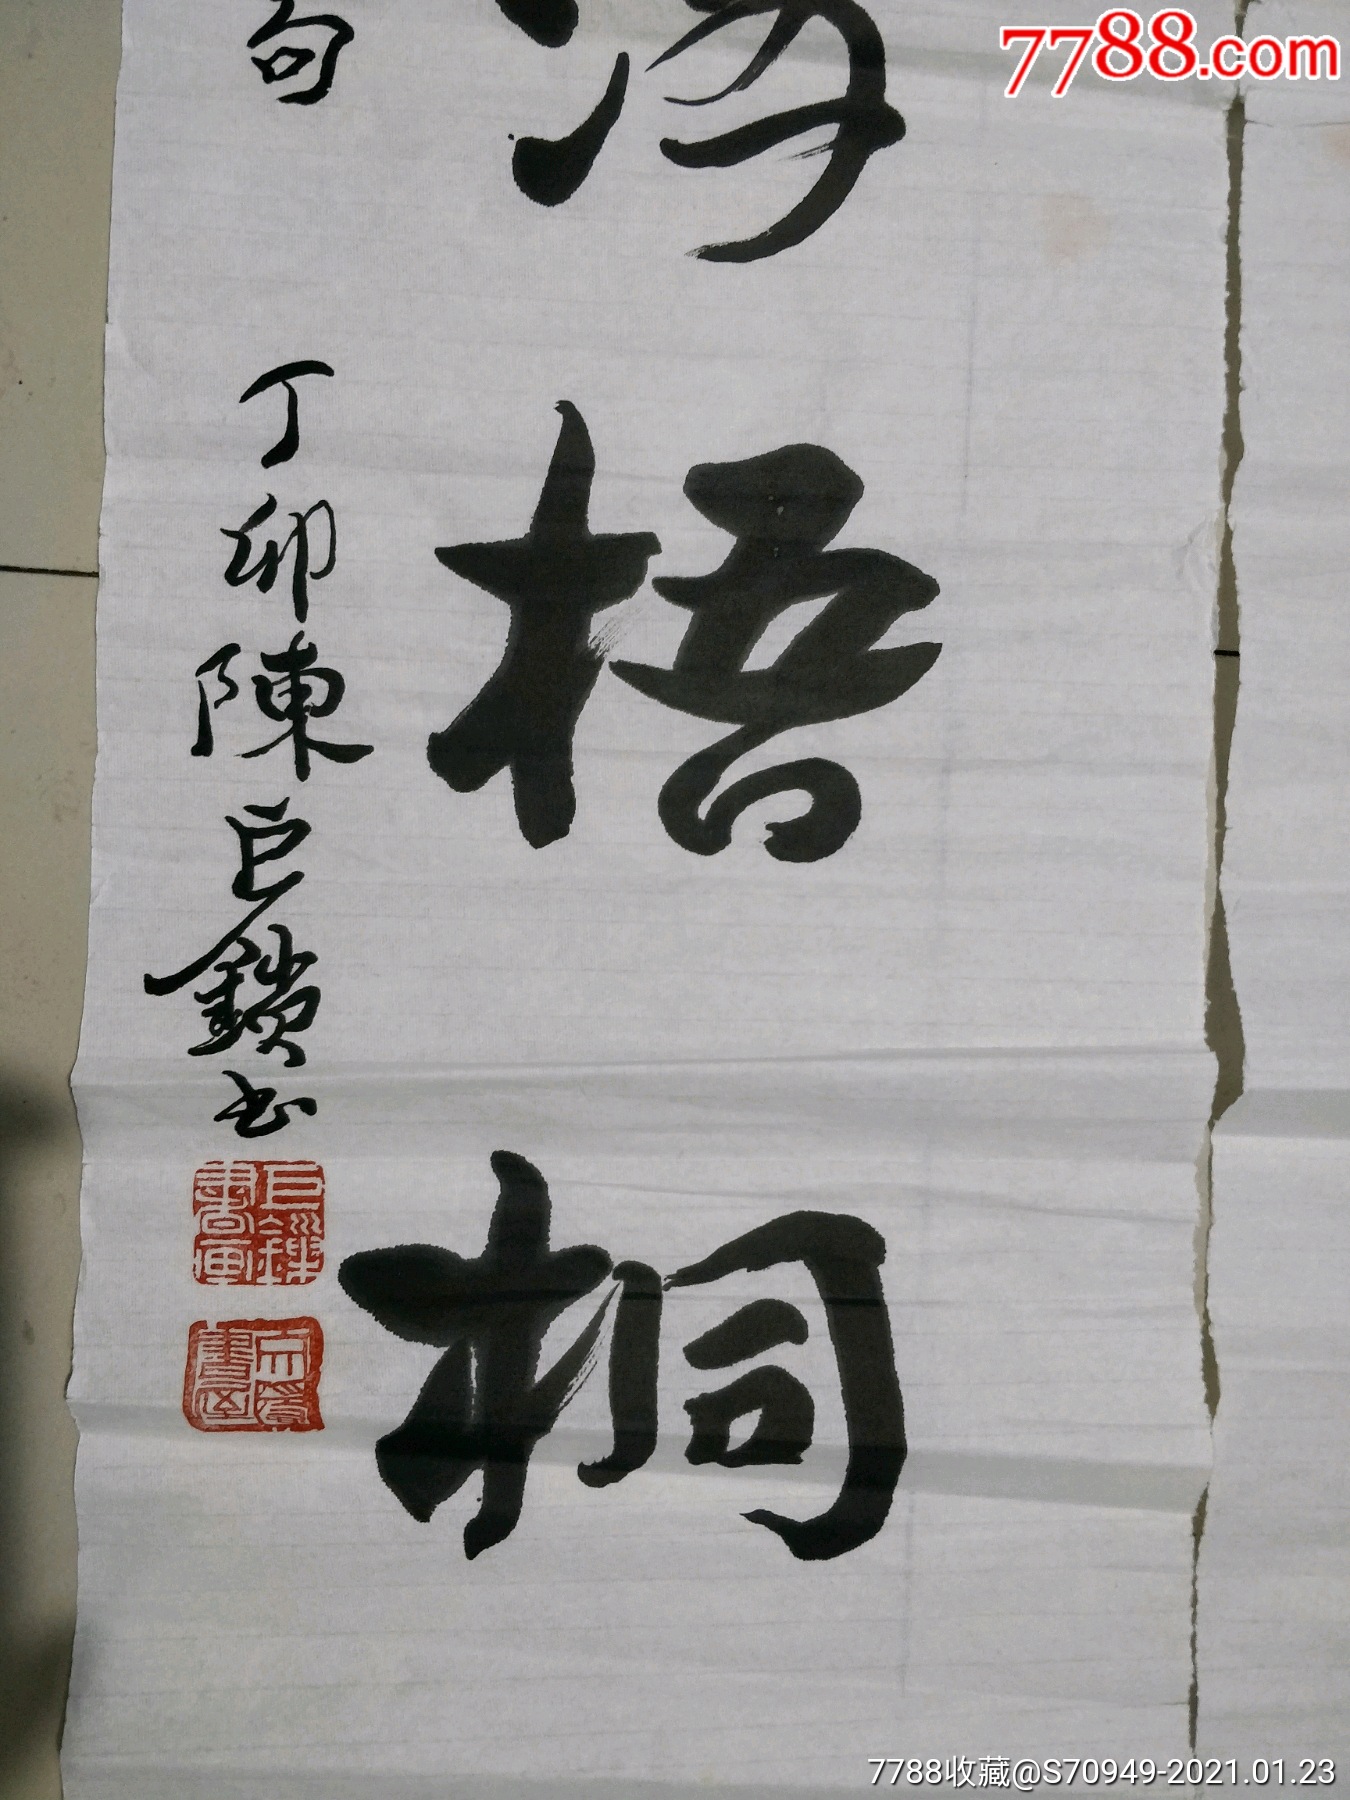 7788.com
梧桐
句
丁卯陳巨鎖书
巨鎖書画
7788收藏@S70949-2021.01.23